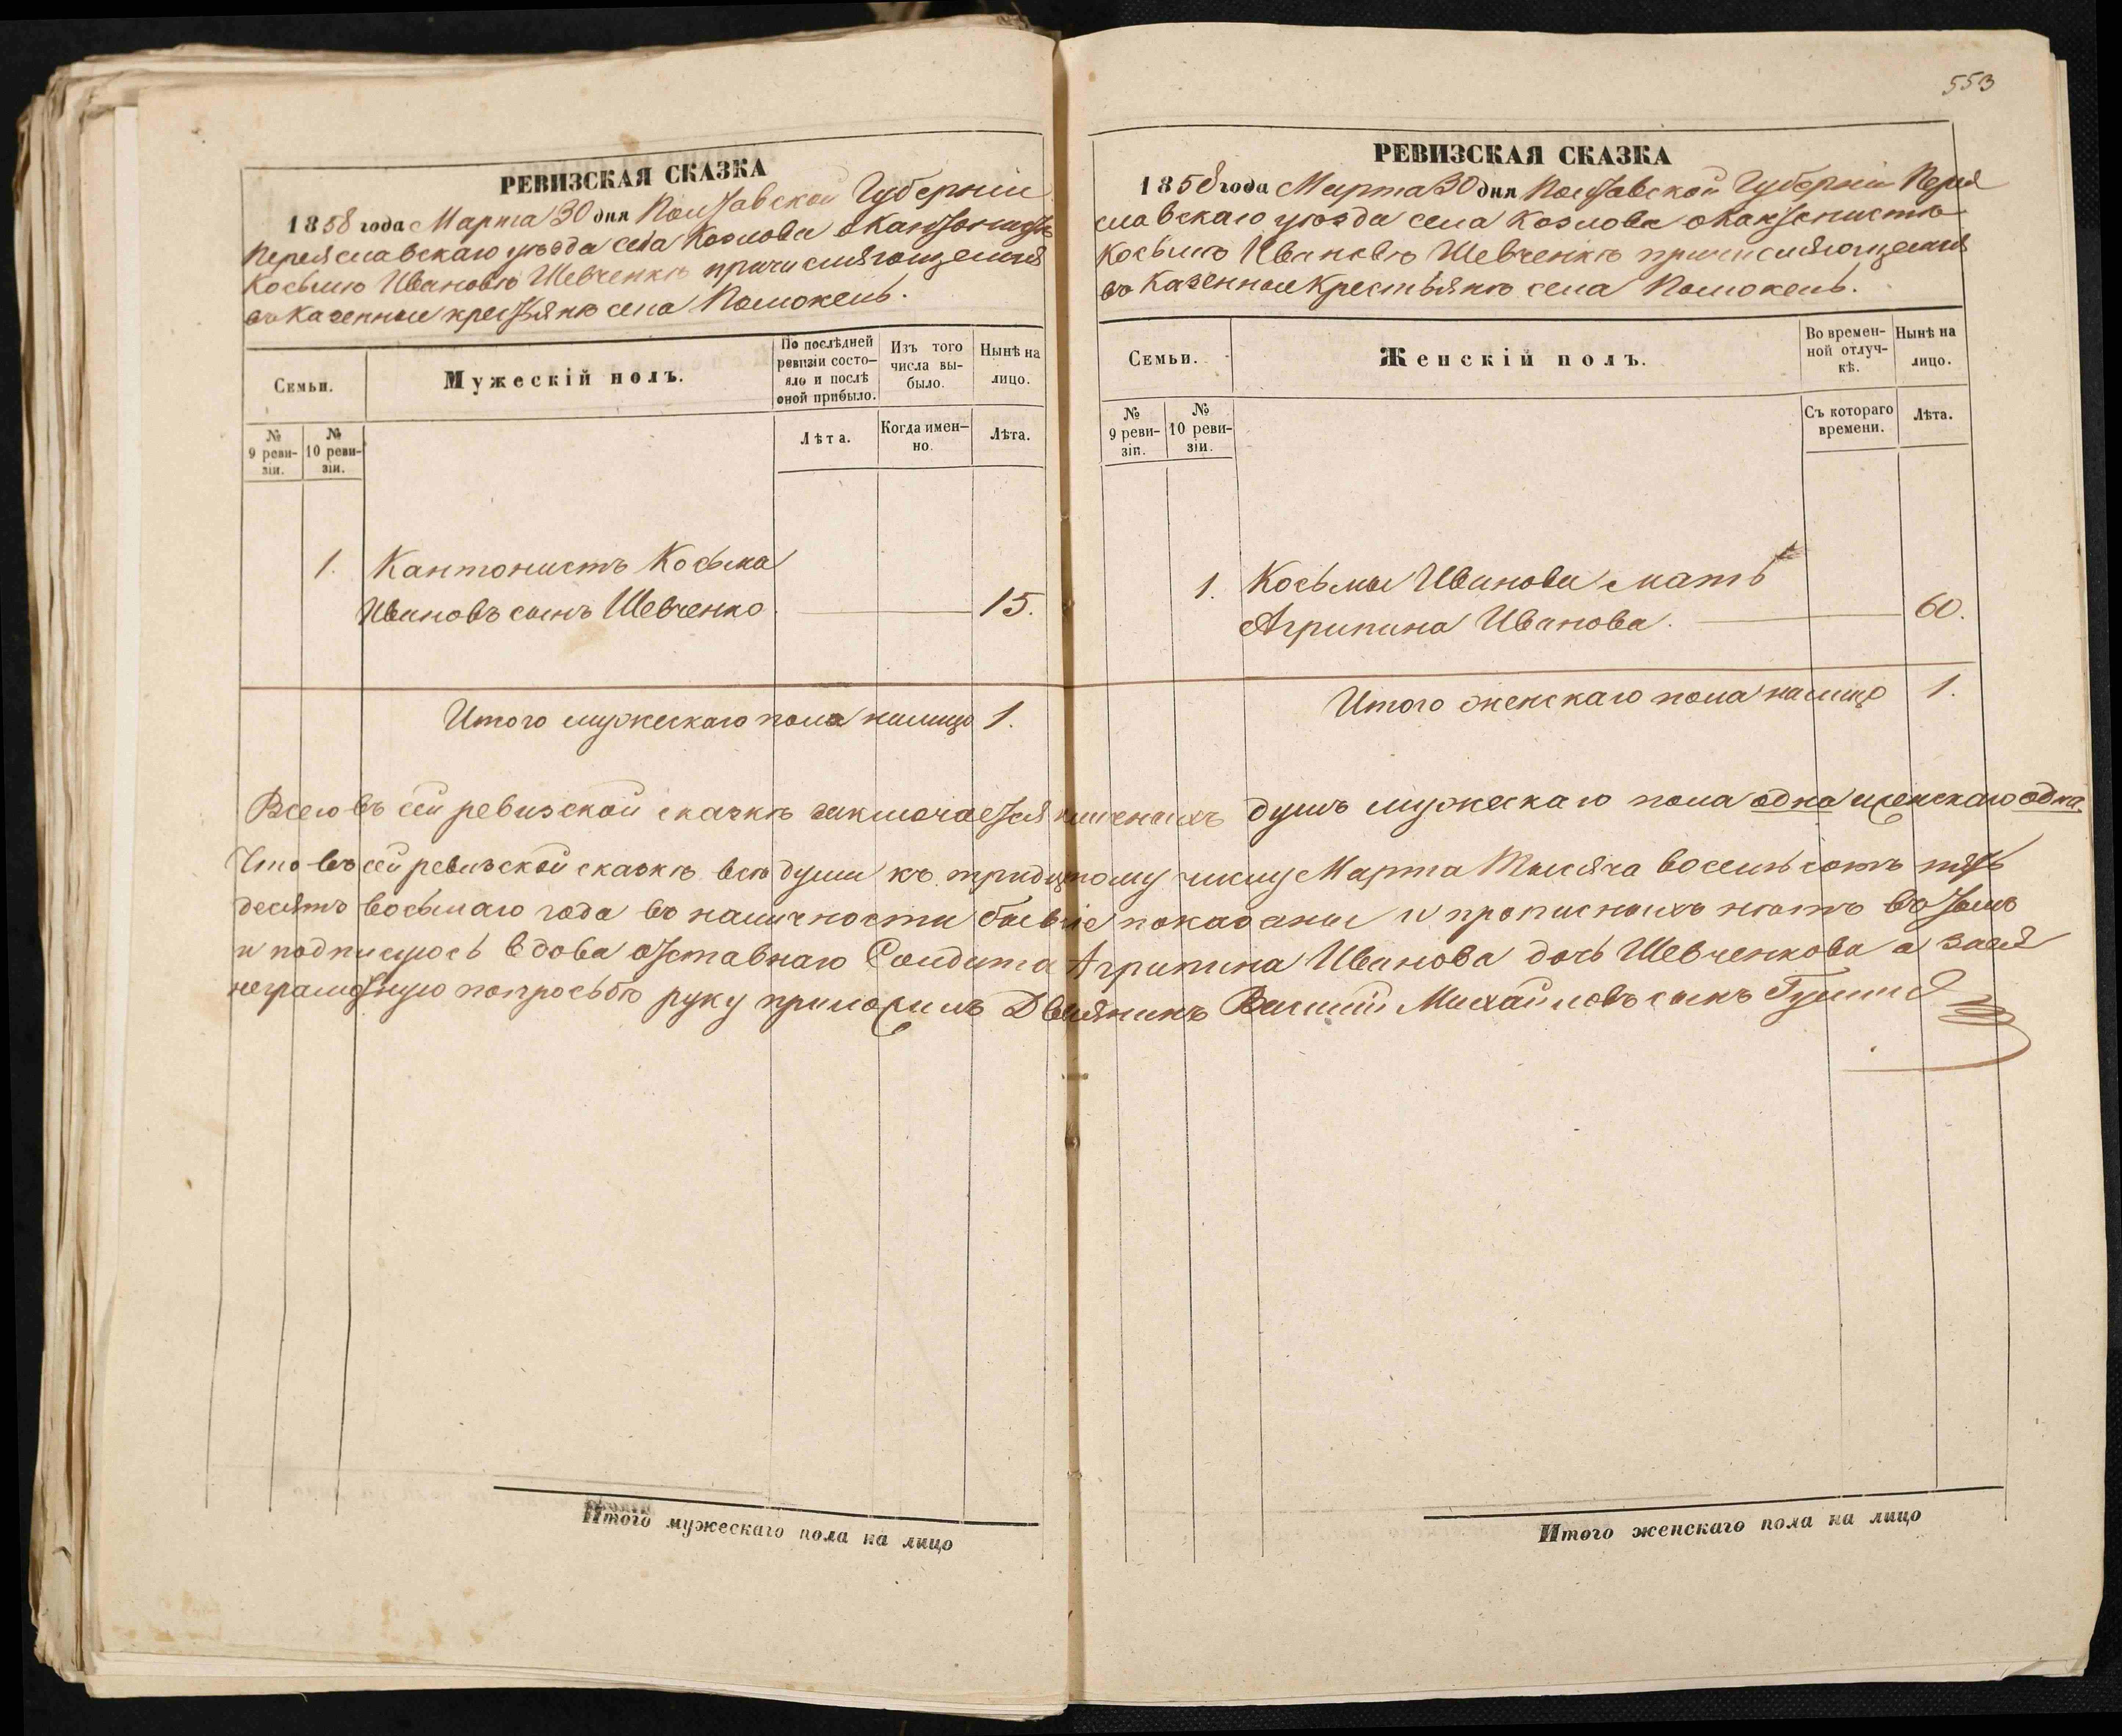 553
РЕВИЗСКАЯ СКАЗКА
1858 года Марта 30 дня Полтавской Губерніи
Переяславскаго уѣзда села Козлова о Кантонистѣ
Косьмѣ Ивановѣ Шевченкѣ причисляющемся
въ Казенные крестьянѣ села Помокель.
Семьи.
Мужескій полъ.
По послѣдней
ревизіи состо-
яло и послѣ
оной прибыло.
Изъ того
числа вы-
было.
Нынѣ на
лицо.
№
9 реви-
зіи.
№
10 реви-
зіи.
Лѣта.
Когда имен-
но.
Лѣта.
1. Кантонистъ Косьма
Ивановъ сынъ Шевченко 15.
Итого мужескаго пола налицо 1.
РЕВИЗСКАЯ СКАЗКА
1858 года Марта 30 дня Полтавской Губерніи Перея
славскаго уѣзда села Козлова о Кантонистѣ
Косьмѣ Ивановѣ Шевченкѣ причисляющемся
въ Казенные Крестьянѣ села Помокель.
Семьи.
Женскій полъ.
Во времен-
ной отлуч-
кѣ.
Нынѣ на
лицо.
№
9 реви-
зіи.
№
10 реви-
зіи.
Съ котораго
времени.
Лѣта.
1. Косьмы Иванова мать
Агрипина Иванова. 60.
Итого женскаго пола налицо 1.
Всего въ сей ревизской сказкѣ заключается наличныхъ душъ мужескаго пола одна и женскаго одна.
Что въ сей ревизской сказкѣ всѣ души къ тридцатому числу Марта Тысяча восемьсотъ пять
десятъ восьмаго года въ наличности бывшіе показаны и прописныхъ нѣтъ въ томъ
и подписуюсь вдова отставнаго Солдата Агрипина Иванова дочь Шевченкова а за нея
неграмотную по просьбѣ руку приложилъ Дворянинъ Василій Михайловъ сынъ
Итого мужескаго пола на лицо
Итого женскаго пола на лицо